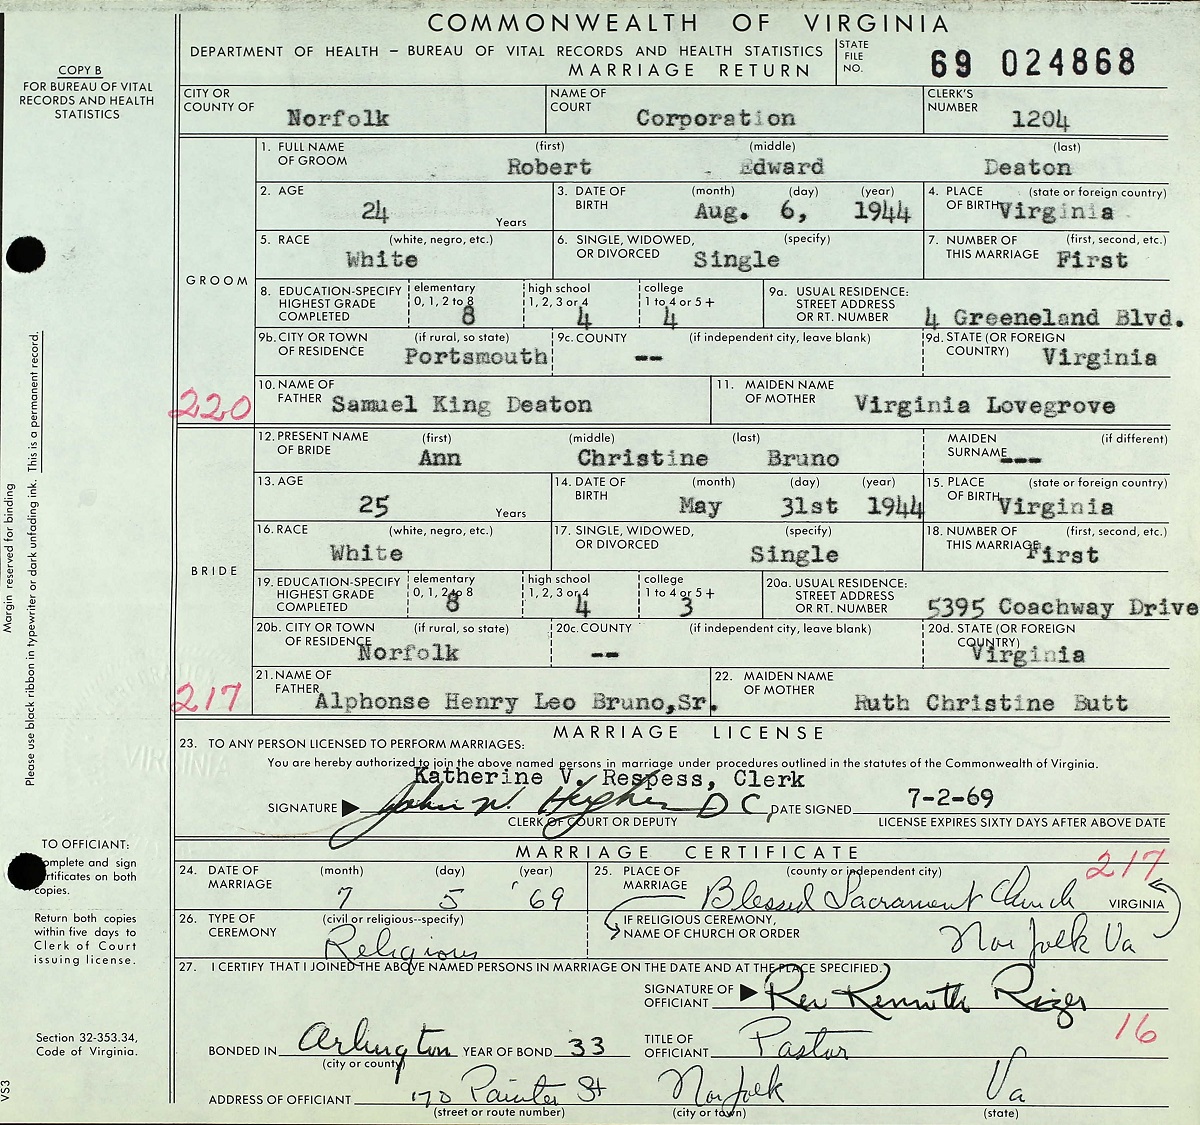 COMMONWEALTH OF VIRGINIA
DEPARTMENT OF HEALTH – BUREAU OF VITAL RECORDS AND HEALTH STATISTICS
MARRIAGE RETURN
STATE FILE NO. 69 024868
COPY B
FOR BUREAU OF VITAL
RECORDS AND HEALTH
STATISTICS
CITY OR COUNTY OF Norfolk
NAME OF COURT Corporation
CLERK'S NUMBER 1204
GROOM
1. FULL NAME OF GROOM (first) Robert (middle) Edward (last) Deaton
2. AGE 24 Years
3. DATE OF BIRTH (month) (day) (year) Aug. 6, 1944
4. PLACE OF BIRTH (state or foreign country) Virginia
5. RACE (white, negro, etc.) White
6. SINGLE, WIDOWED, OR DIVORCED (specify) Single
7. NUMBER OF THIS MARRIAGE (first, second, etc.) First
8. EDUCATION-SPECIFY HIGHEST GRADE COMPLETED elementary 0, 1, 2 to 8 8 high school 1, 2, 3 or 4 4 college 1 to 4 or 5 + 4
9a. USUAL RESIDENCE: STREET ADDRESS OR RT. NUMBER 4 Greeneland Blvd.
9b. CITY OR TOWN OF RESIDENCE (if rural, so state) Portsmouth
9c. COUNTY (if independent city, leave blank) --
9d. STATE (OR FOREIGN COUNTRY) Virginia
220
10. NAME OF FATHER Samuel King Deaton
11. MAIDEN NAME OF MOTHER Virginia Lovegrove
BRIDE
12. PRESENT NAME OF BRIDE (first) Ann (middle) Christine (last) Bruno
MAIDEN SURNAME (if different) ---
13. AGE 25 Years
14. DATE OF BIRTH (month) (day) (year) May 31st 1944
15. PLACE OF BIRTH (state or foreign country) Virginia
16. RACE (white, negro, etc.) White
17. SINGLE, WIDOWED, OR DIVORCED (specify) Single
18. NUMBER OF THIS MARRIAGE (first, second, etc.) First
19. EDUCATION-SPECIFY HIGHEST GRADE COMPLETED elementary 0, 1, 2 to 8 8 high school 1, 2, 3 or 4 4 college 1 to 4 or 5 + 3
20a. USUAL RESIDENCE: STREET ADDRESS OR RT. NUMBER 5395 Coachway Drive
20b. CITY OR TOWN OF RESIDENCE (if rural, so state) Norfolk
20c. COUNTY (if independent city, leave blank) --
20d. STATE (OR FOREIGN COUNTRY) Virginia
217
21. NAME OF FATHER Alphonse Henry Leo Bruno,Sr.
22. MAIDEN NAME OF MOTHER Ruth Christine Butt
Margin reserved for binding
Please use black ribbon in typewriter or dark unfading ink. This is a permanent record.
VIRGINIA
MARRIAGE LICENSE
23. TO ANY PERSON LICENSED TO PERFORM MARRIAGES:
You are hereby authorized to join the above named persons in marriage under procedures outlined in the statutes of the Commonwealth of Virginia.
Katherine V. Respess, Clerk
SIGNATURE John W. Hughes D C, DATE SIGNED 7-2-69
CLERK OF COURT OR DEPUTY LICENSE EXPIRES SIXTY DAYS AFTER ABOVE DATE
MARRIAGE CERTIFICATE
217
24. DATE OF MARRIAGE (month) (day) (year) 7 5 '69
25. PLACE OF MARRIAGE (county or independent city) Blessed Sacrament Church VIRGINIA
26. TYPE OF CEREMONY (civil or religious--specify) Religious
IF RELIGIOUS CEREMONY, NAME OF CHURCH OR ORDER Norfolk Va
27. I CERTIFY THAT I JOINED THE ABOVE NAMED PERSONS IN MARRIAGE ON THE DATE AND AT THE PLACE SPECIFIED.
SIGNATURE OF OFFICIANT Rev Kenneth Rizer
16
BONDED IN Arlington YEAR OF BOND 33
(city or county)
TITLE OF OFFICIANT Pastor
ADDRESS OF OFFICIANT 170 Painter St Norfolk Va
(street or route number) (city or town) (state)
TO OFFICIANT:
omplete and sign
rtificates on both
copies.
Return both copies
within five days to
Clerk of Court
issuing license.
Section 32-353.34,
Code of Virginia.
VS3